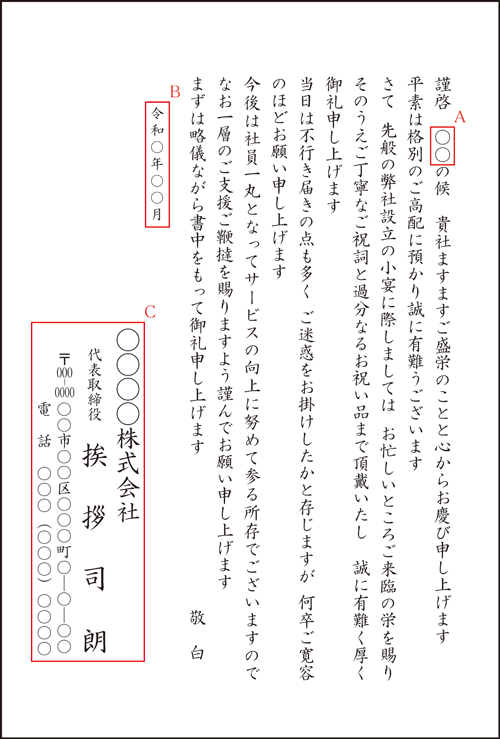 A
謹啓　〇〇の候　貴社ますますご盛栄のことと心からお慶び申し上げます
平素は格別のご高配に預かり誠に有難うございます
さて　先般の弊社設立の小宴に際しましては　お忙しいところご来臨の栄を賜り
そのうえご丁寧なご祝詞と過分なるお祝い品まで頂戴いたし　誠に有難く厚く
御礼申し上げます
当日は不行き届きの点も多く　ご迷惑をお掛けしたかと存じますが　何卒ご寛容
のほどお願い申し上げます
今後は社員一丸となってサービスの向上に努めて参る所存でございますので
なお一層のご支援ご鞭撻を賜りますよう謹んでお願い申し上げます
まずは略儀ながら書中をもって御礼申し上げます　敬白
B
令和〇年〇〇月
C
〇〇〇〇株式会社
代表取締役　挨拶司朗
〒000-0000　〇〇市〇〇区〇〇〇町〇―〇―〇〇
電話　〇〇〇（〇〇〇）〇〇〇〇